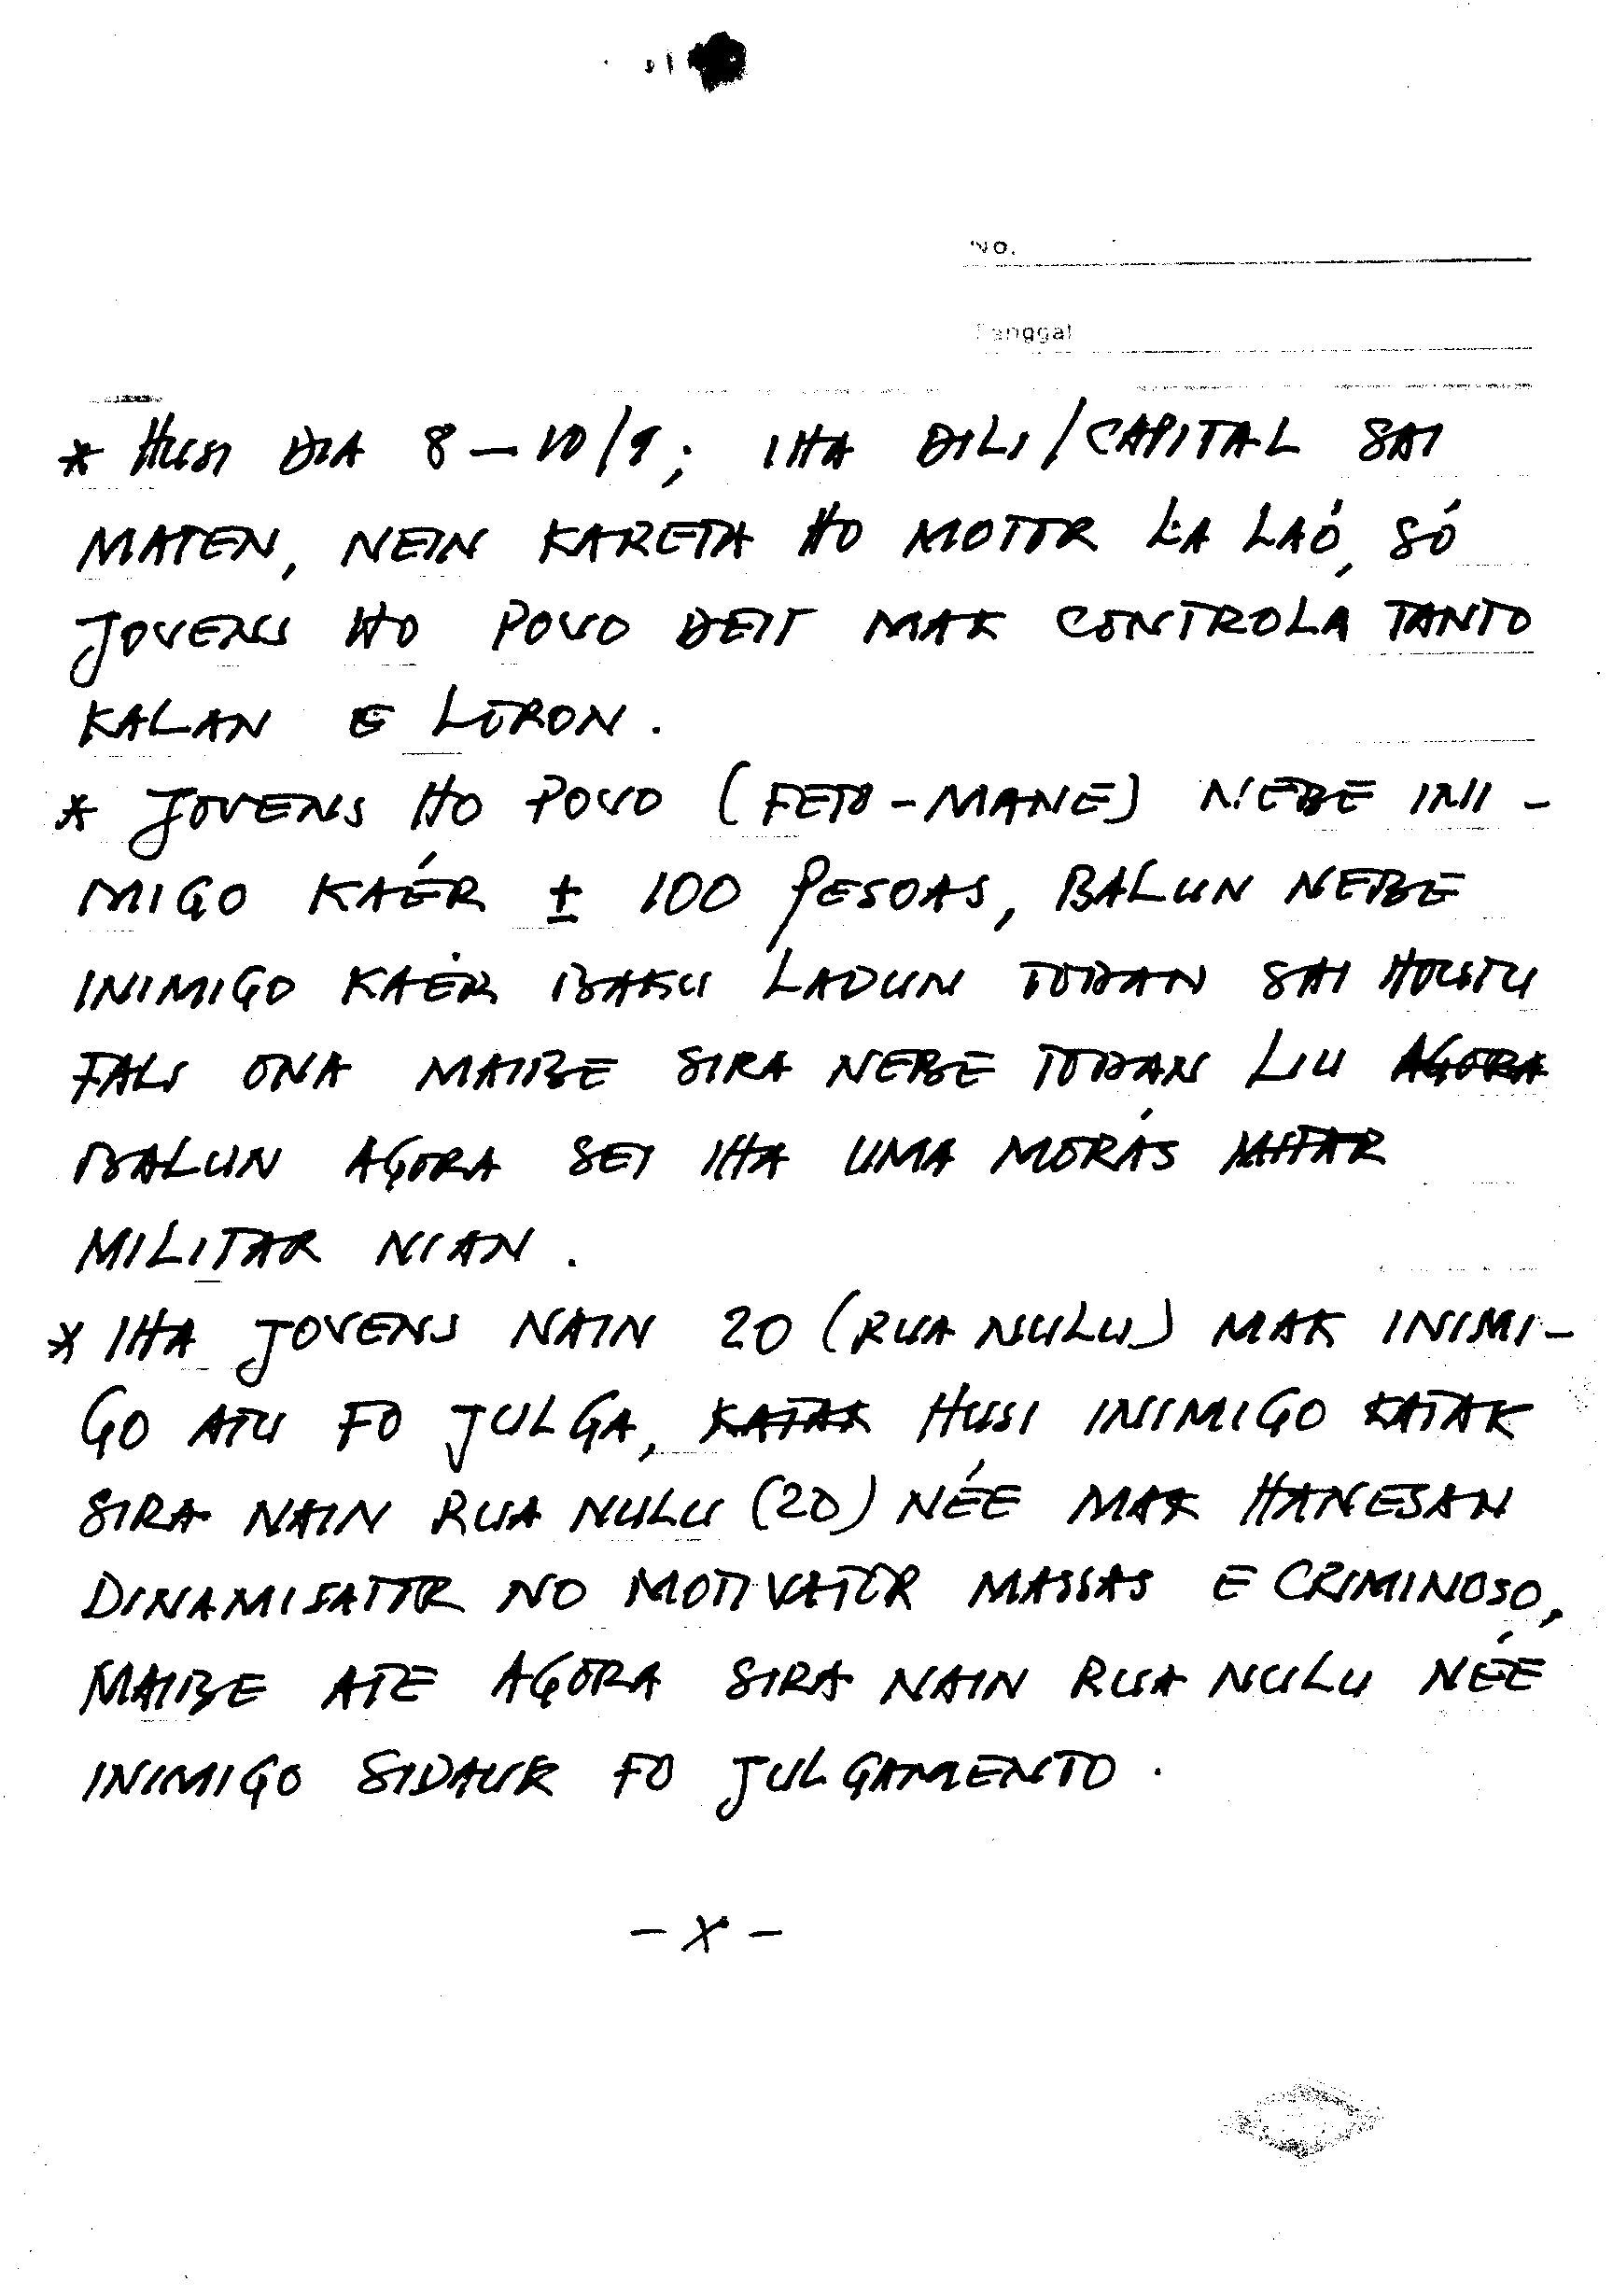 No.
Tanggal
* HUSI DIA 8 – 10/9; IHA DILI/CAPITAL SAI
MATEN, NEIN KARETA HO MOTOR LA LAÓ, SÓ
JOVENS HO POVO DEIT MAK CONTROLA TANTO
KALAN E LORON.
* JOVENS HO POVO (FETO-MANE) NEBE INI-
MIGO KAÉR ± 100 PESOAS, BALUN NEBE
INIMIGO KAÉR BAKU LADUN TODAN SAI HOUTU
FALI ONA MAIBE SIRA NEBE TODAN LIU AGORA
BALUN AGORA SEI IHA UMA MORÁS
MILITAR NIAN.
* IHA JOVENS NAIN 20 (RUA NULU) MAK INIMI-
GO ATU FO JULGA, KATAK HUSI INIMIGO KATAK
SIRA NAIN RUA NULU (20) NÉE MAK HANESAN
DINAMISATOR NO MOTIVATOR MASSAS E CRIMINOSO,
MAIBE ATE AGORA SIRA NAIN RUA NULU NÉE
INIMIGO SIDAUK FO JULGAMENTO.
– X –